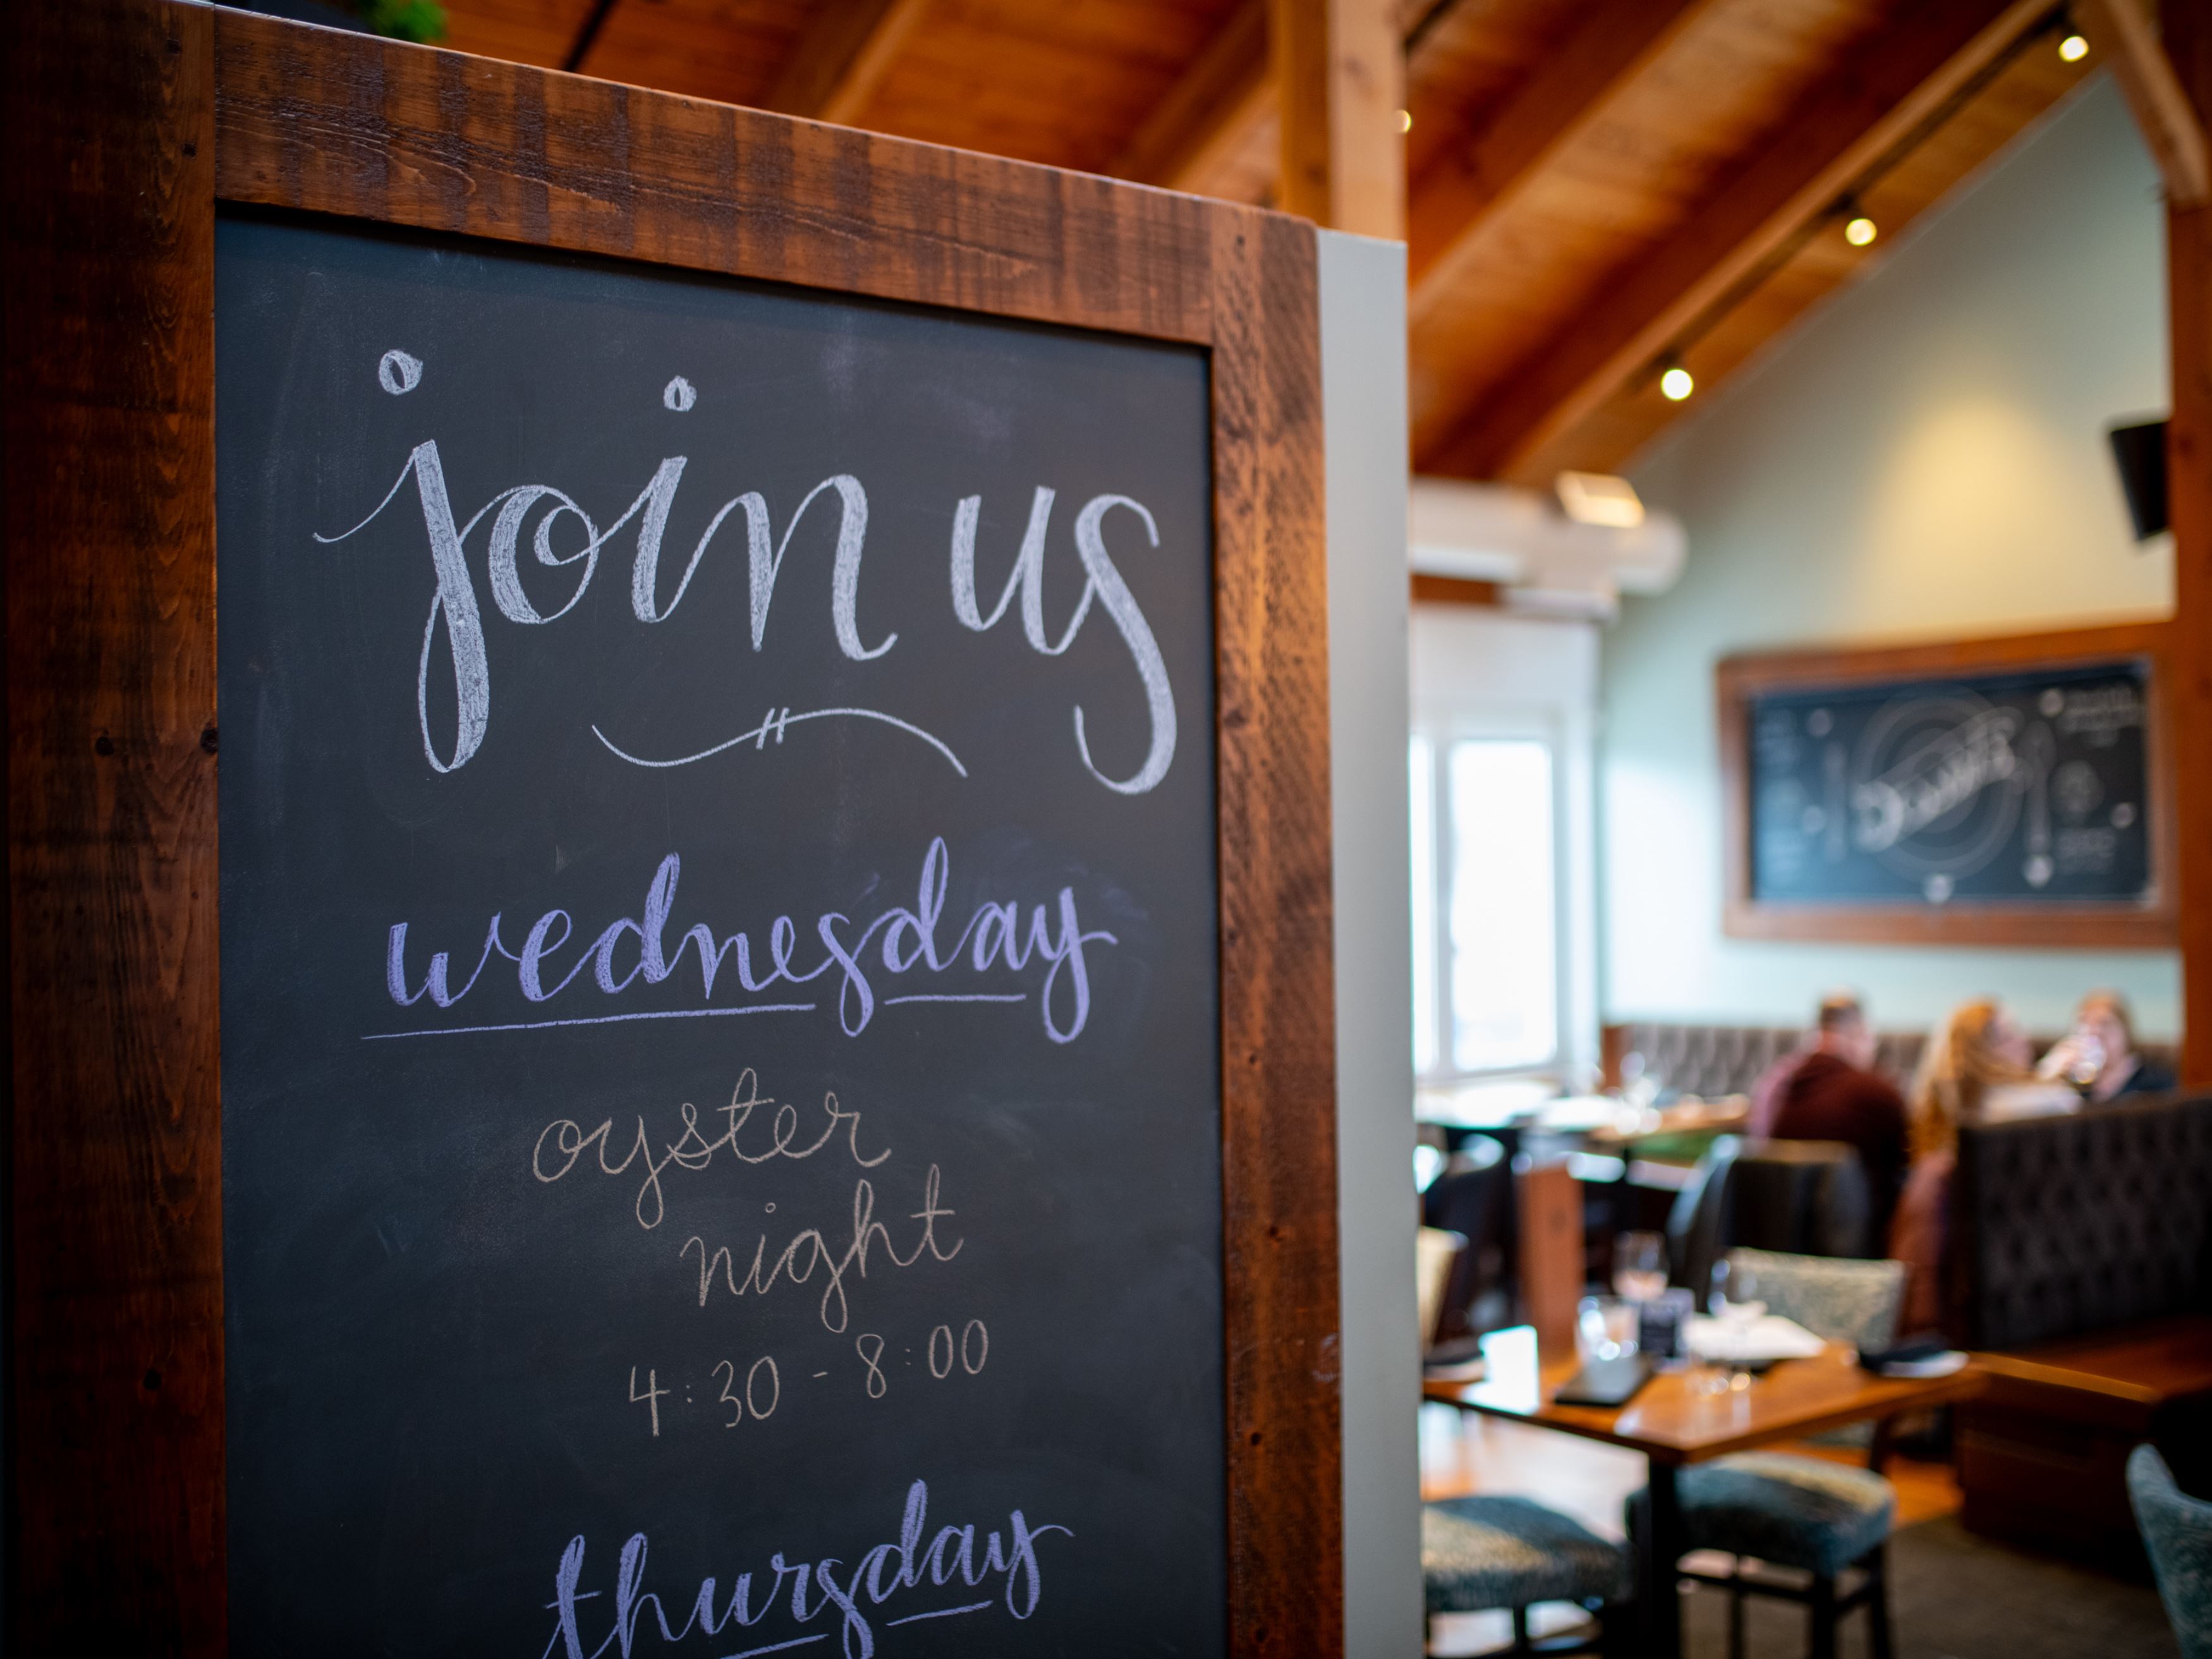 join us
wednesday
oyster
night
4:30 - 8:00
thursday